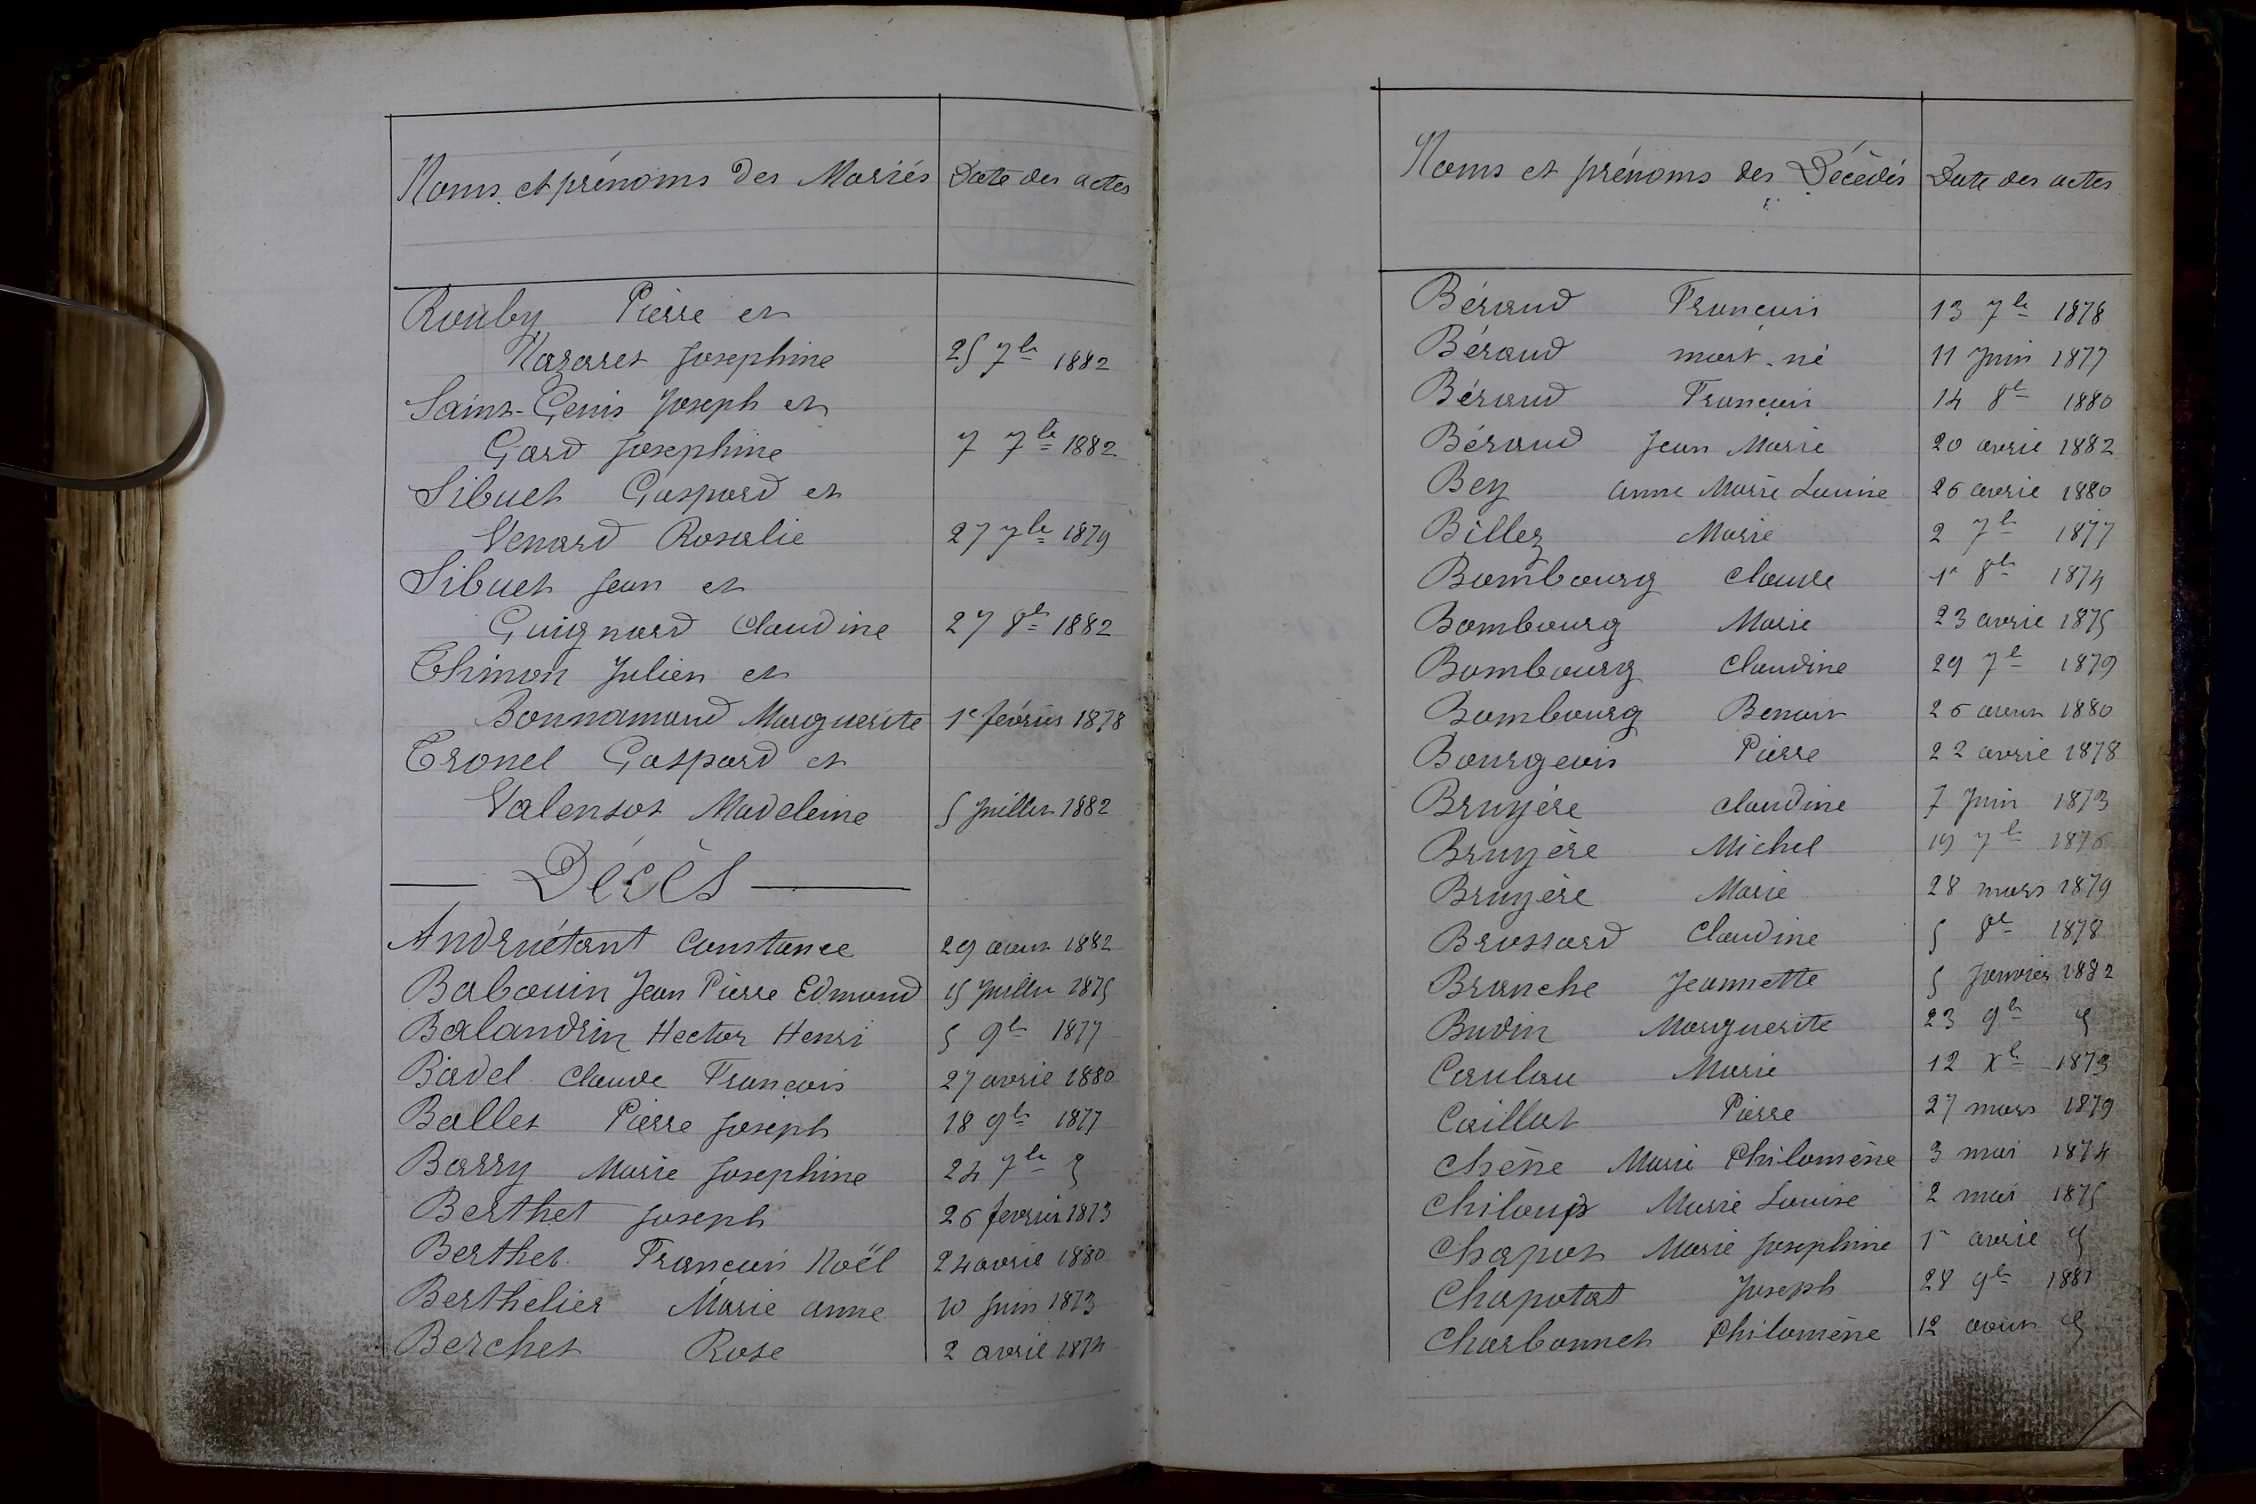 Noms et prénoms des Mariés Date des actes
Rouby Pierre et
Nazaret Josephine 25 7bre 1882
Saint-Genis Joseph et
Gard Josephine 7 7bre 1882
Sibuet Gaspard et
Venard Rosalie 27 7bre 1879
Sibuet Jean et
Guignard Claudine 27 8bre 1882
Thimon Julien et
Bonnamand Marguerite 1e février 1878
Tronel Gaspard et
Valensot Madeleine 5 Juillet 1882
Décès
Andruétant Constance 29 aout 1882
Babouin Jean Pierre Edmond 15 Juillet 1875
Balandrin Hector Henri 5 9bre 1877
Badel Claude François 27 avril 1880
Ballet Pierre Joseph 18 9bre 1877
Barry Marie Josephine 24 7bre
Berthet Joseph 26 fevrier 1873
Berthet François Noël 24 avril 1880
Berthelier Marie anne 10 Juin 1873
Berchet Rose 2 avril 1874
Noms et prénoms des Décédés Date des actes
Béraud François 13 7bre 1878
Béraud mort-né 11 Juin 1877
Béraud François 14 8bre 1880
Béraud Jean Marie 20 avril 1882
Bey anne Marie Louise 26 avril 1880
Billez Marie 2 7bre 1877
Bombourg Claude 1r 8bre 1874
Bombourg Marie 23 avril 1875
Bombourg Claudine 29 7bre 1879
Bombourg Benoit 26 aout 1880
Bourgeois Pierre 22 avril 1878
Bruyère Claudine 7 Juin 1873
Bruyère Michel 19 7bre 1876
Bruyère Marie 28 mars 1879
Brossard Claudine 5 8bre 1878
Branche Jeannette 5 Janvier 1882
Budin Marguerite 23 9bre
Caulau Marie 12 Xbre 1873
Caillat Pierre 27 mars 1879
Chêne Marie Philomène 3 mai 1874
Chiloup Marie Louise 2 mai 1875
Chapot Marie Josephine 1r avril
Chapotat Joseph 28 9bre 1881
Charbonnet Philomène 12 aout